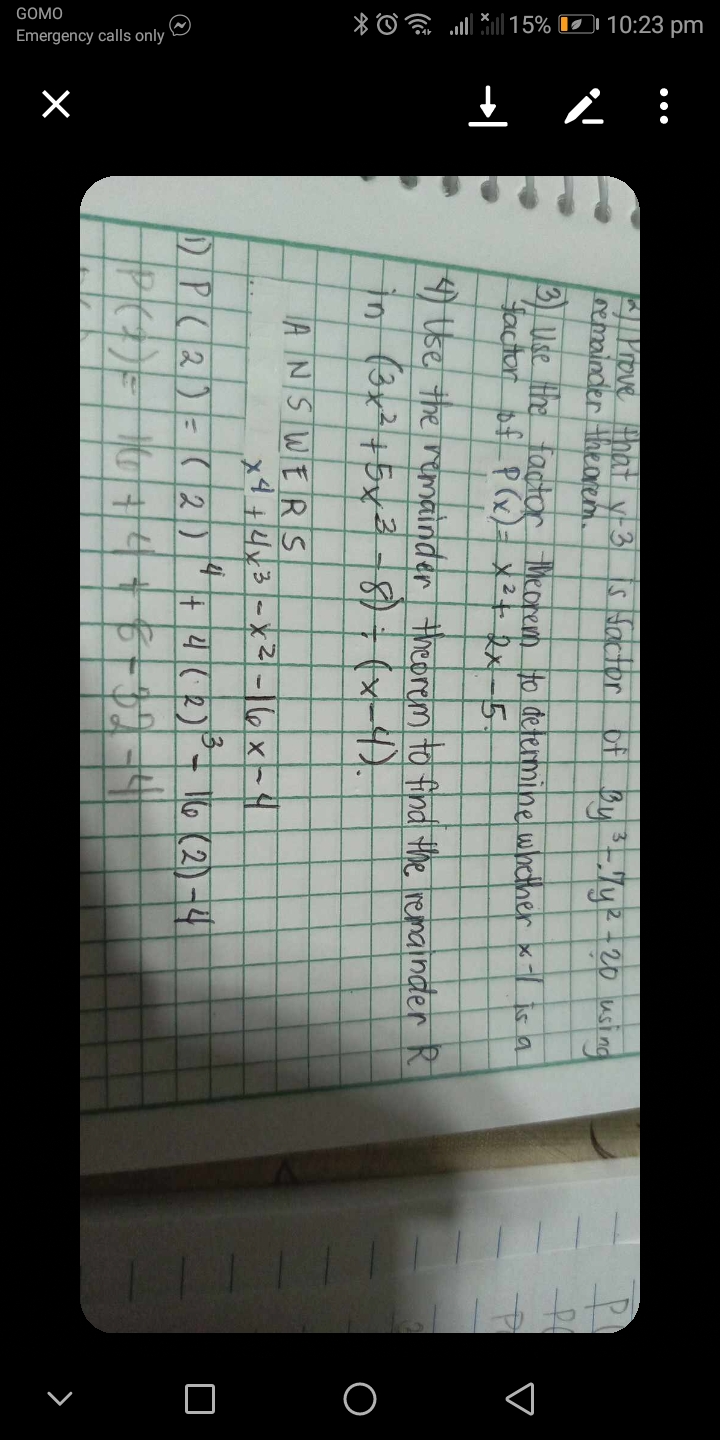 GOMO
Emergency calls only
15% 10:23 pm
2) Prove that y-3 is factor of 3y³-7y²-20 using
remainder theorem.
3) Use the factor theorem to determine whether x-1 is a
factor of P(x)= x²+ 2x -5.
4) Use the remainder theorem to find the remainder R
in (3x²+5x³-8)÷(x-4).
ANSWERS
x⁴+4x³-x²-16x-4
1) P(2)=(2)⁴+4(2)³-16(2)-4
P(2)= 16+4+6-32-4